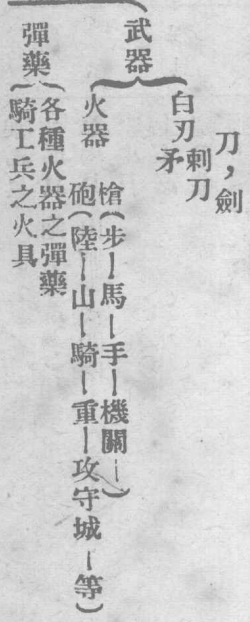 武器
白刃
刀，劍
刺刀
矛
火器
槍（步—馬—手—機關—）
砲（陸—山—騎—重—攻守城—等）
彈藥
各種火器之彈藥
騎工兵之火具